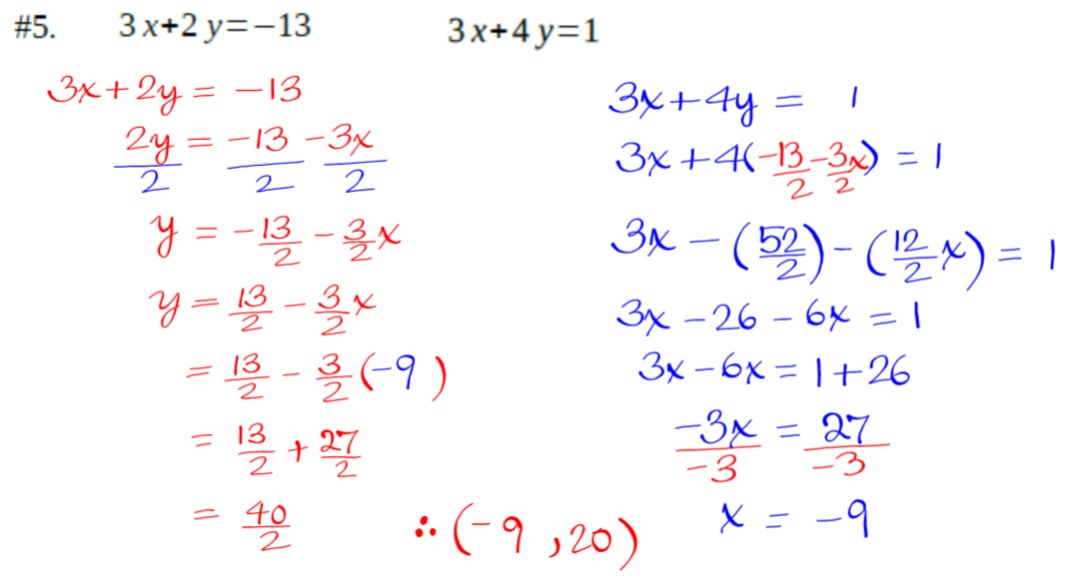 #5. 3x+2y=−13 3x+4y=1
3x + 2y = −13
2y/2 = −13/2 −3x/2
y = −13/2 − 3/2 x
y = 13/2 − 3/2 x
= 13/2 − 3/2 (−9)
= 13/2 + 27/2
= 40/2
∴ (−9, 20)
3x + 4y = 1
3x + 4(−13/2 −3x/2) = 1
3x − (52/2) − (12/2 x) = 1
3x − 26 − 6x = 1
3x − 6x = 1 + 26
−3x/−3 = 27/−3
x = −9